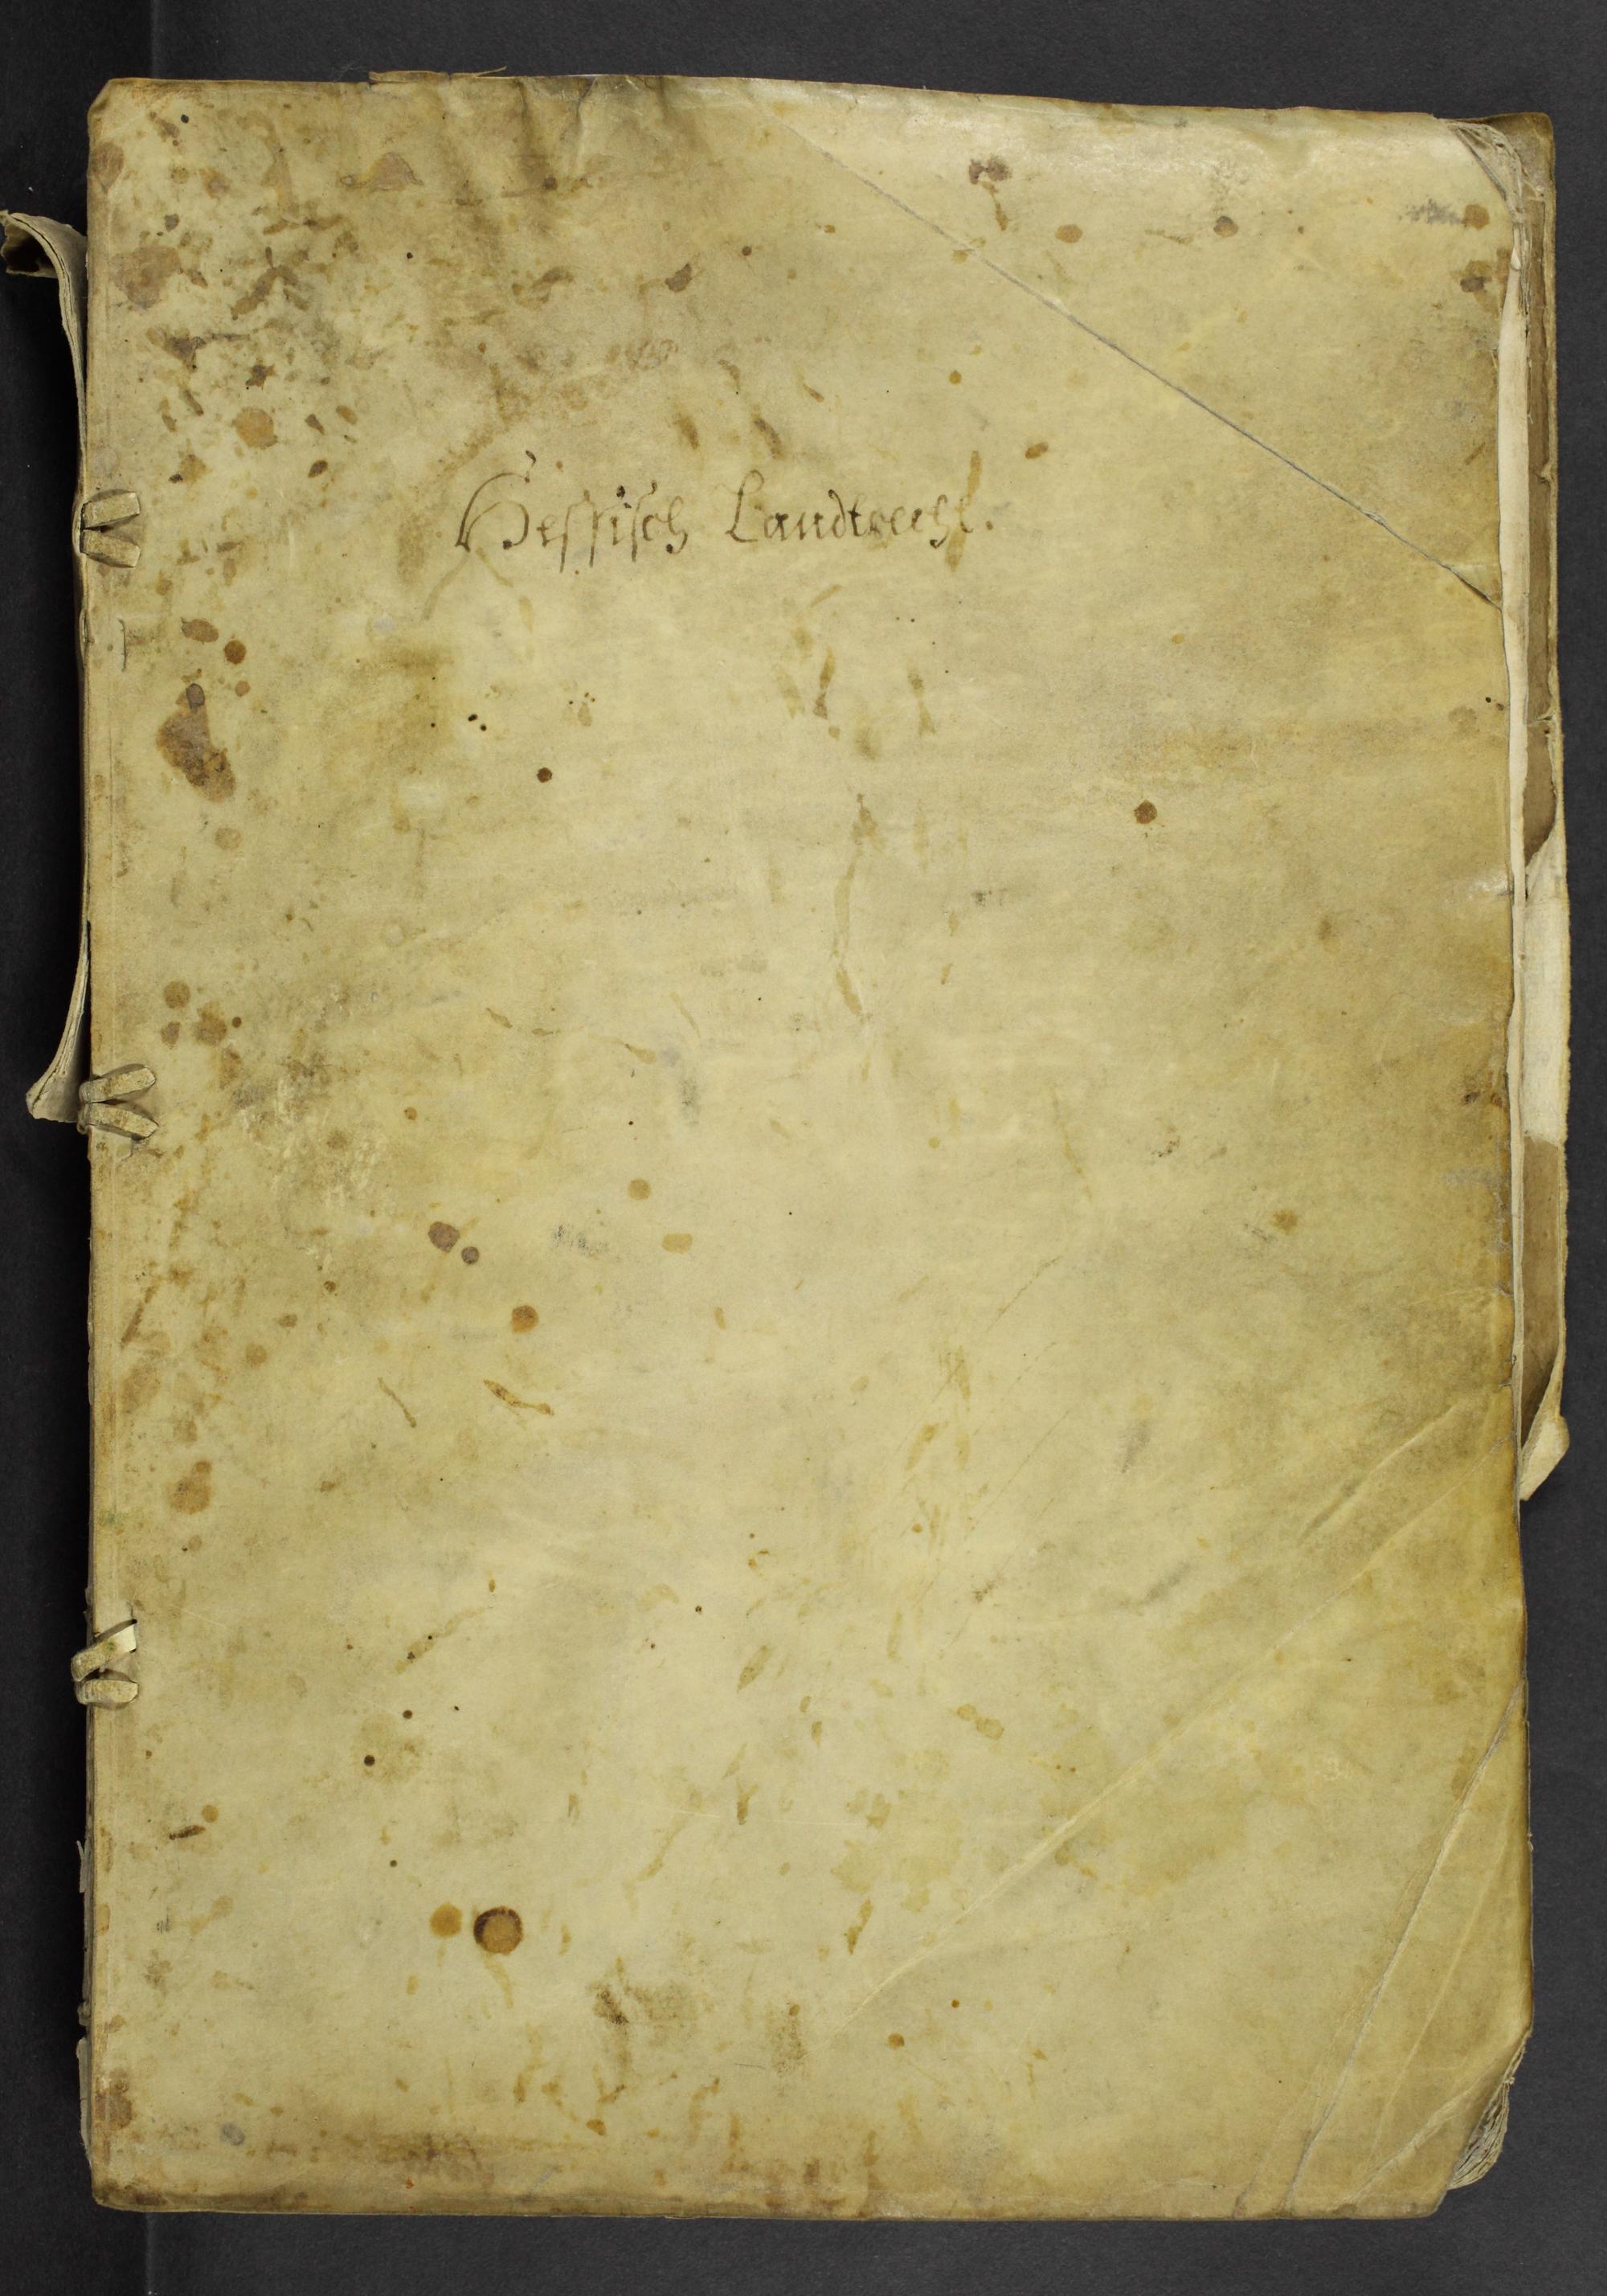 Hessisch Landtrecht.